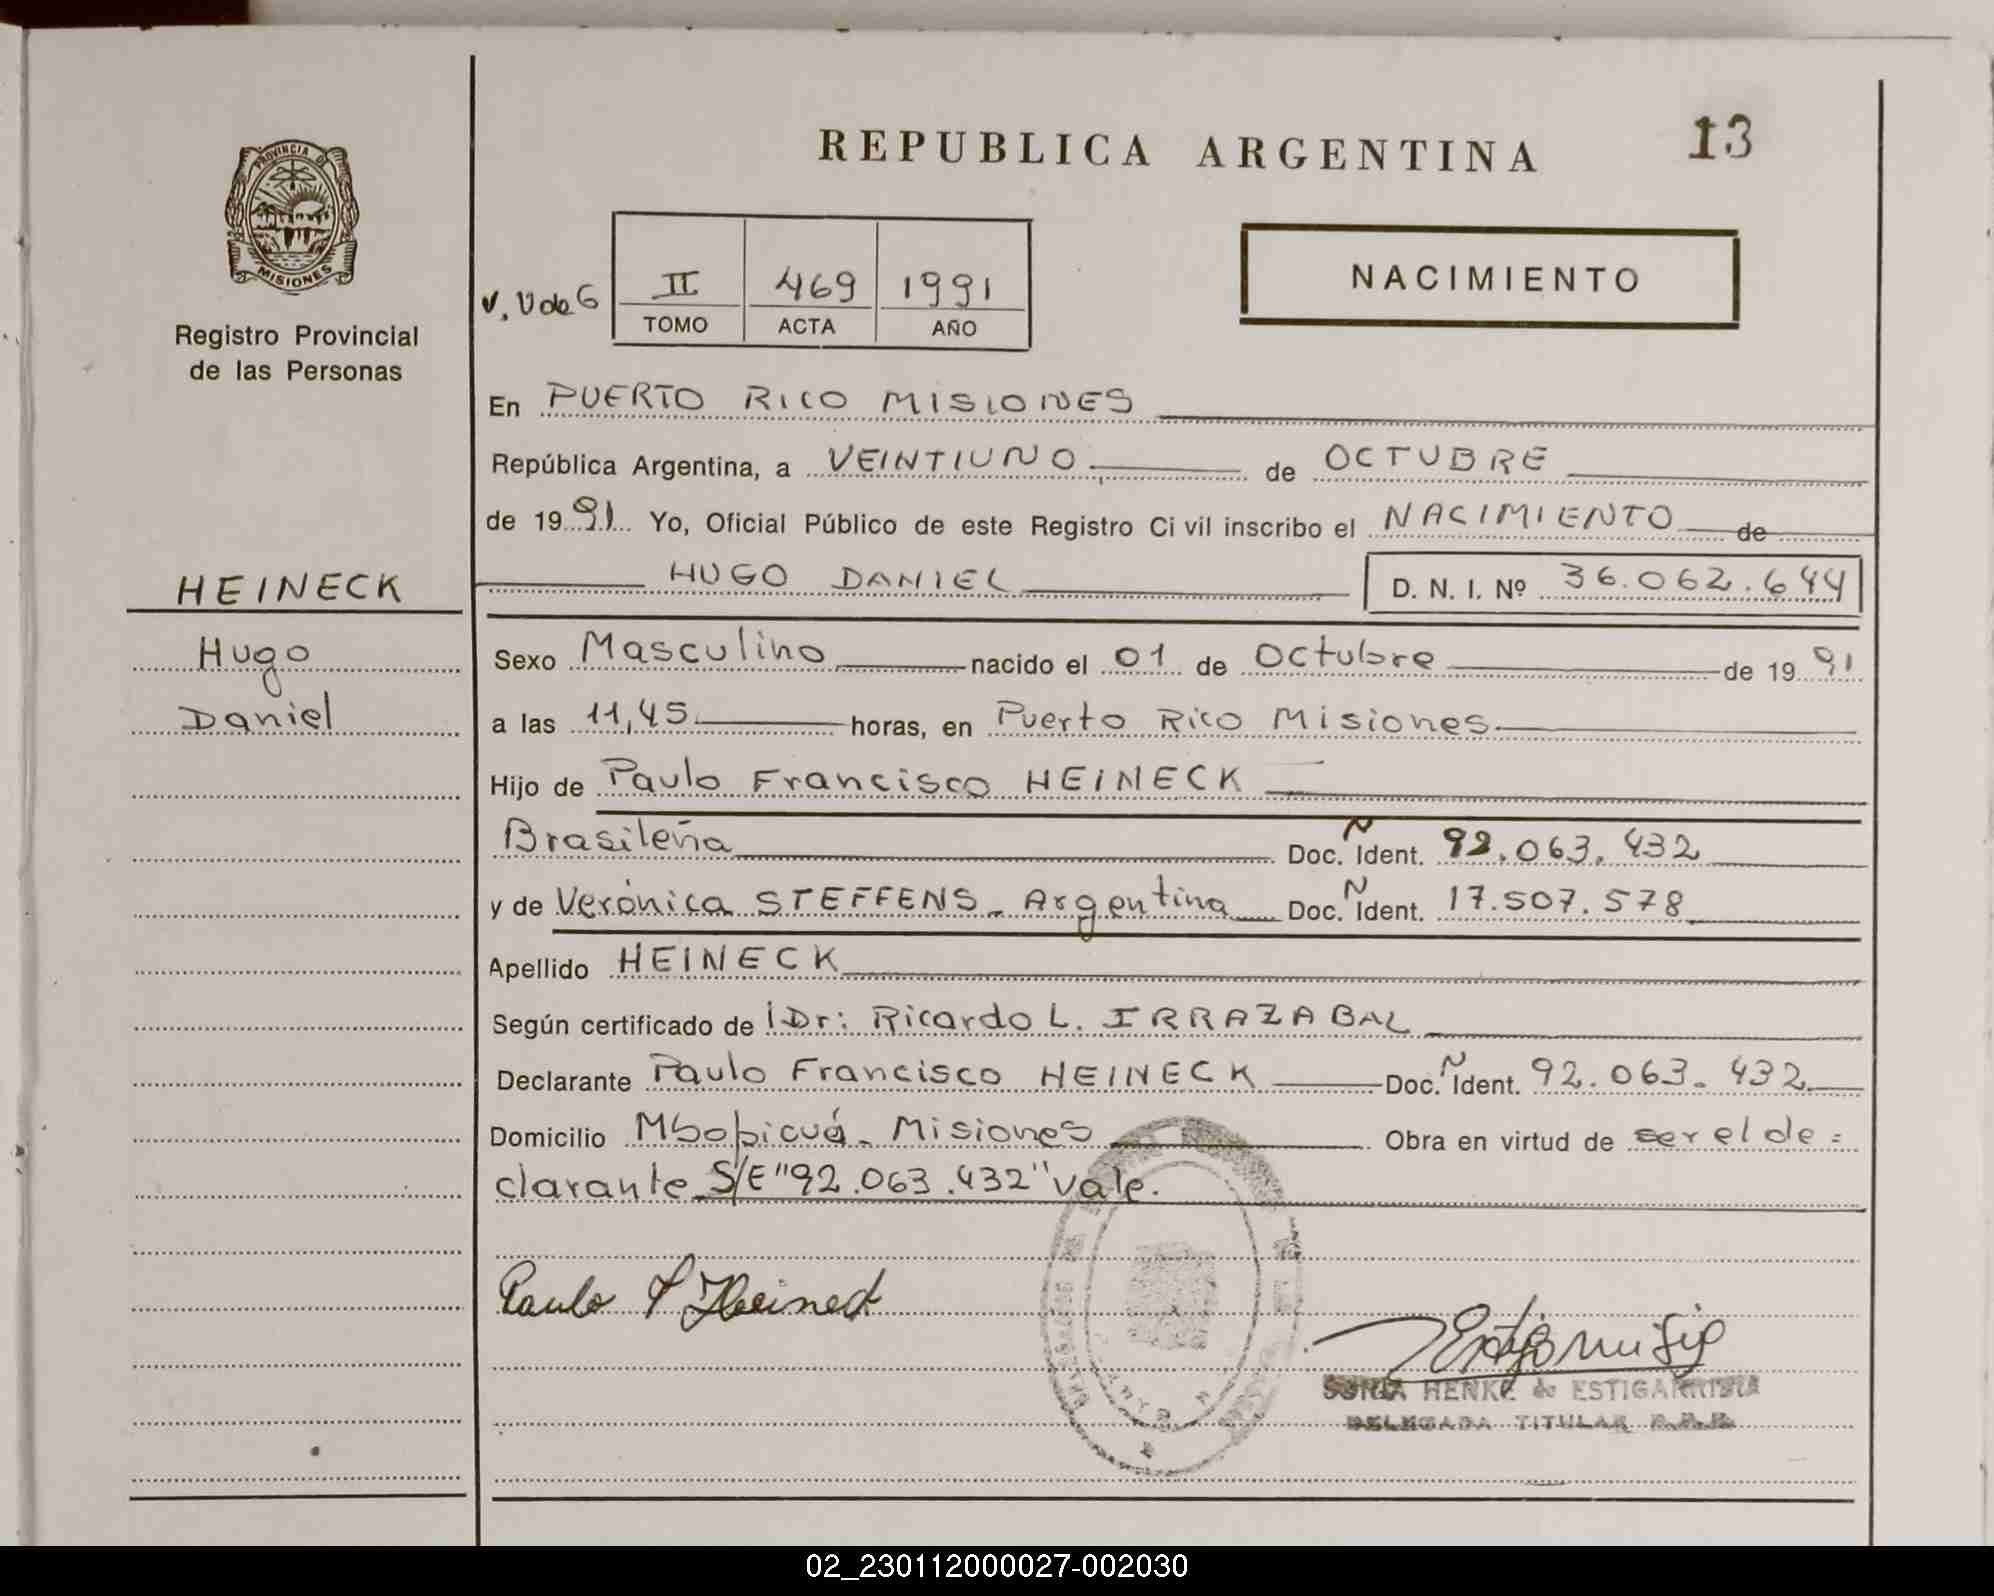 REPUBLICA ARGENTINA
13
PROVINCIA DE
MISIONES
Registro Provincial
de las Personas
V. V de G
II
469
1991
TOMO
ACTA
AÑO
NACIMIENTO
En PUERTO RICO MISIONES
República Argentina, a VEINTIUNO de OCTUBRE
de 1991 Yo, Oficial Público de este Registro Civil inscribo el NACIMIENTO de
HUGO DANIEL
D. N. I. Nº 36.062.644
HEINECK
Hugo
Daniel
Sexo Masculino nacido el 01 de Octubre de 1991
a las 11,45 horas, en Puerto Rico Misiones
Hijo de Paulo Francisco HEINECK
Brasileña Doc. N Ident. 92.063.432
y de Verónica STEFFENS - Argentina Doc. N Ident. 17.507.578
Apellido HEINECK
Según certificado de Dr: Ricardo L. IRRAZABAL
Declarante Paulo Francisco HEINECK Doc. N Ident. 92.063.432
Domicilio Mbopicuá - Misiones Obra en virtud de ser el de=
clarante S/E "92.063.432" vale.
Paulo F Heineck
SONIA HENKE de ESTIGARRIBIA
DELEGADA TITULAR R.P.P.
02_230112000027-002030